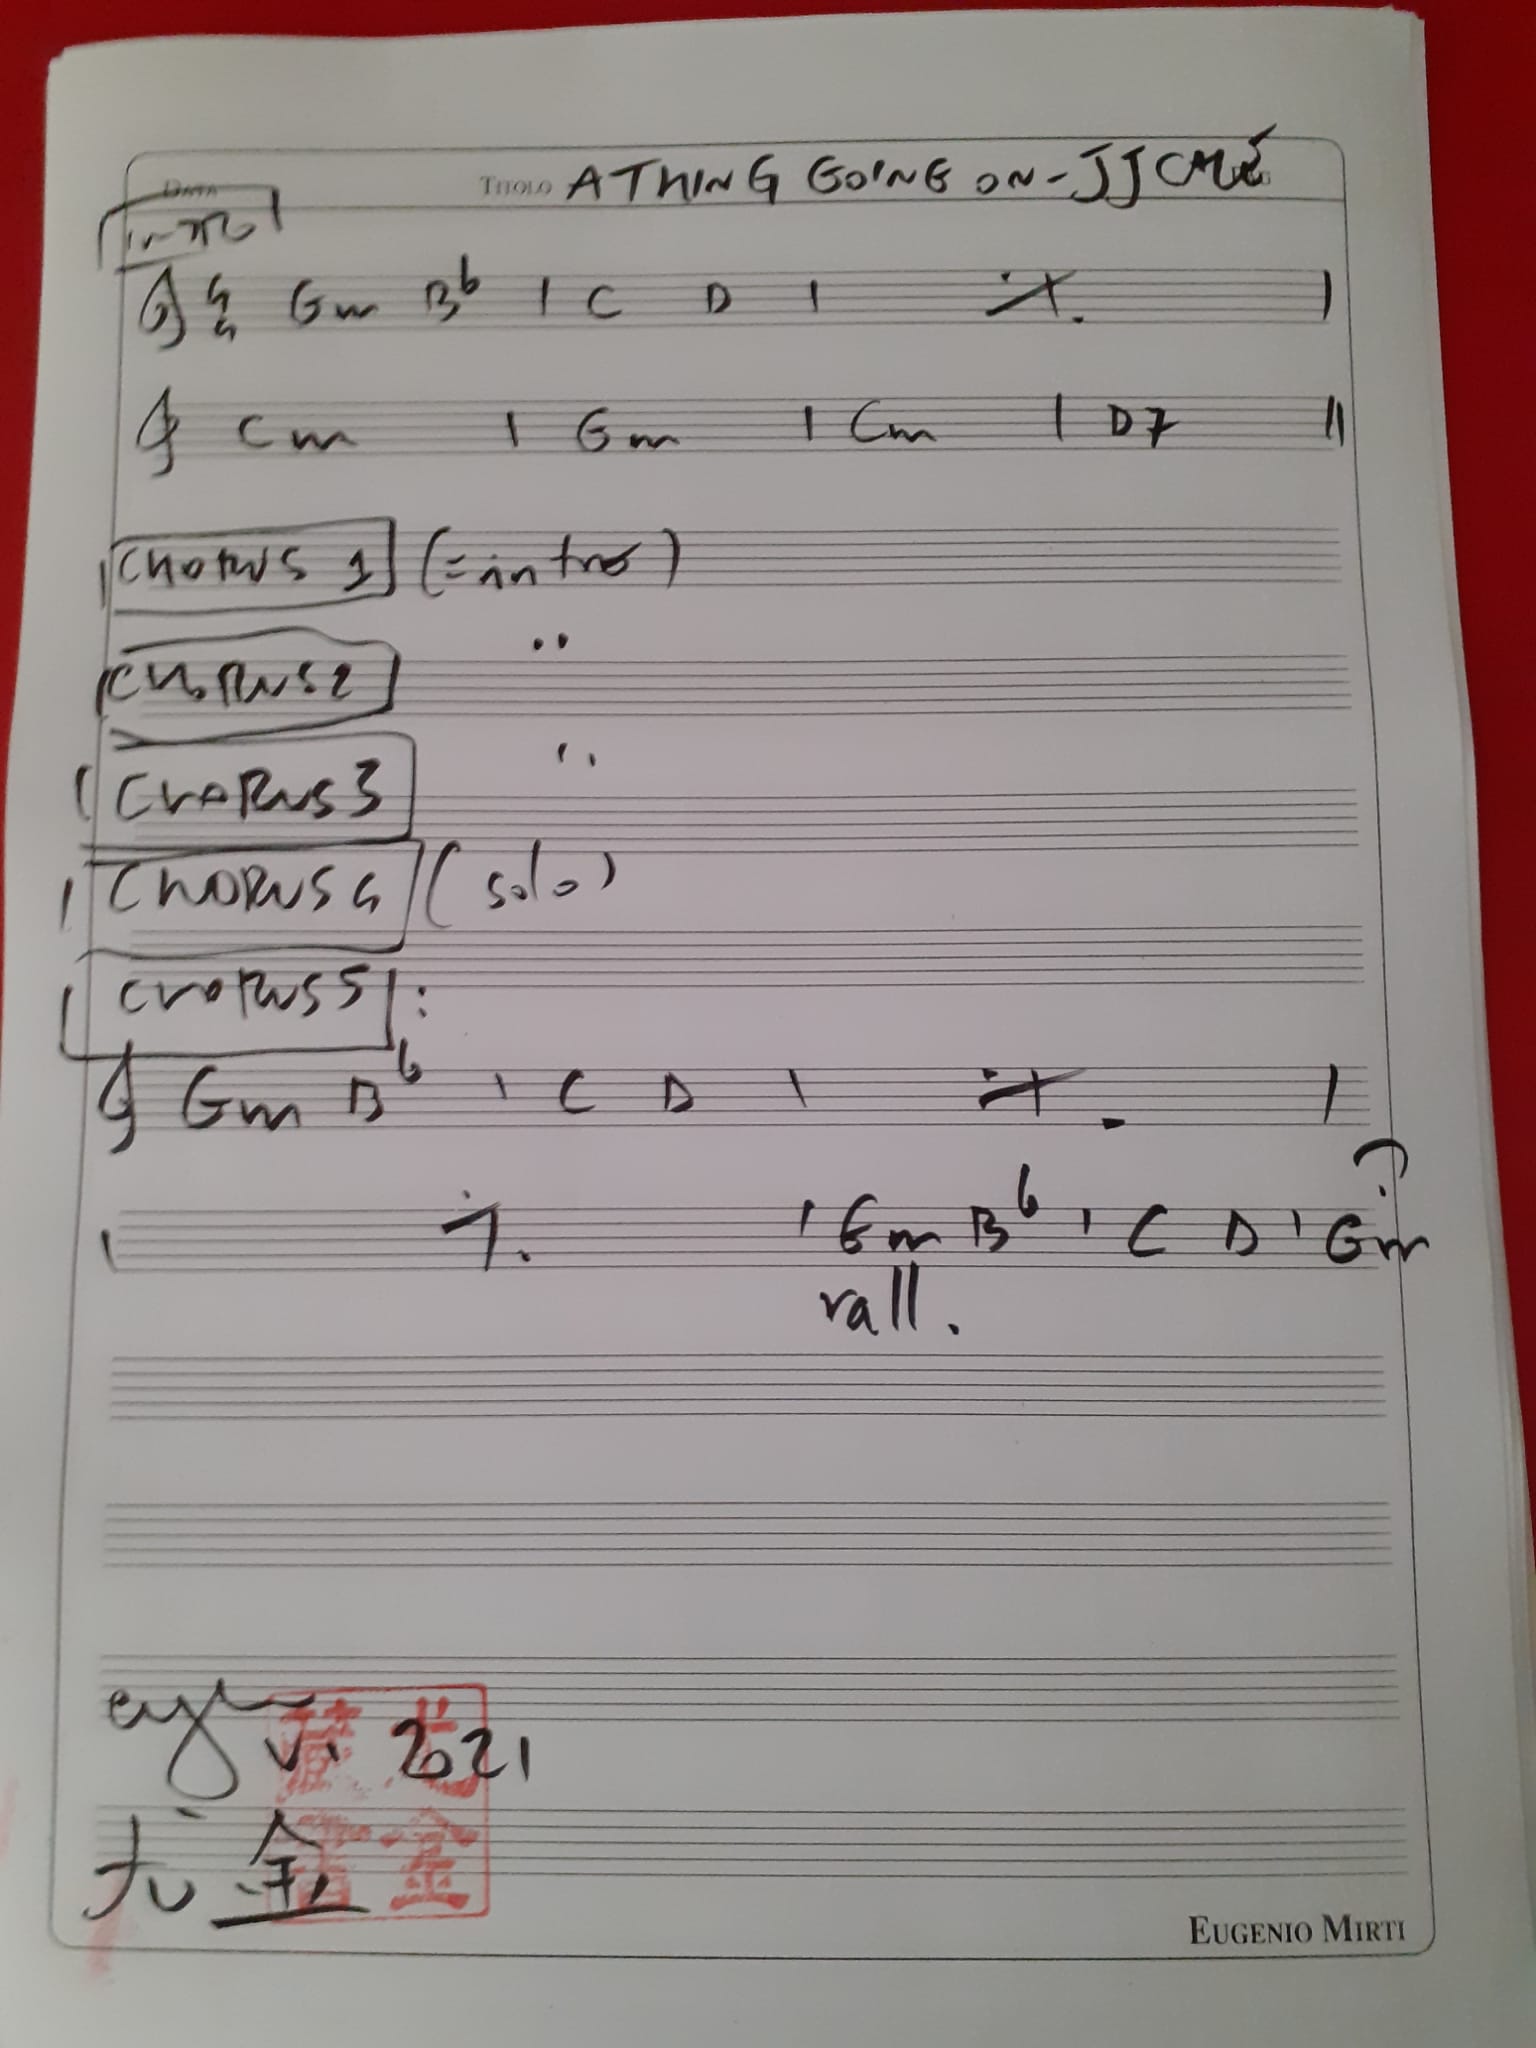 DATA TITOLO A THING GOING ON - JJ CALE
intro
4/4 Gm Bb | C D | 𝄎 |
Cm | Gm | Cm | D7 ||
CHORUS 1 (= intro)
CHORUS 2 ''
CHORUS 3 ''
CHORUS 4 (solo)
CHORUS 5 :
Gm Bb | C D | 𝄎 |
| 𝄎 | Gm Bb | C D | Gm
rall.
2021
尤金
EUGENIO MIRTI